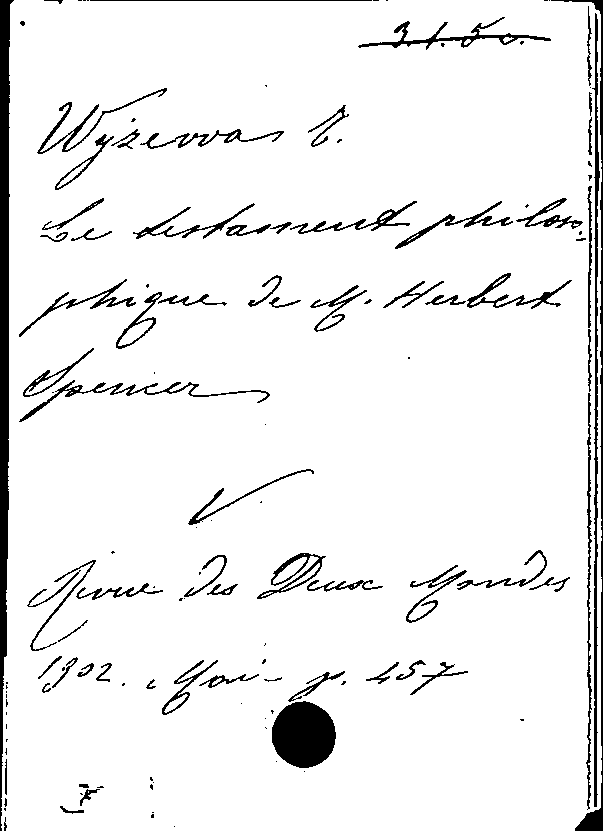 3.1.5c.
Wyzewa T.
Le testament philoso-
phique de M. Herbert
Spencer
V
Revue des Deux Mondes
1902. Mai - p. 457